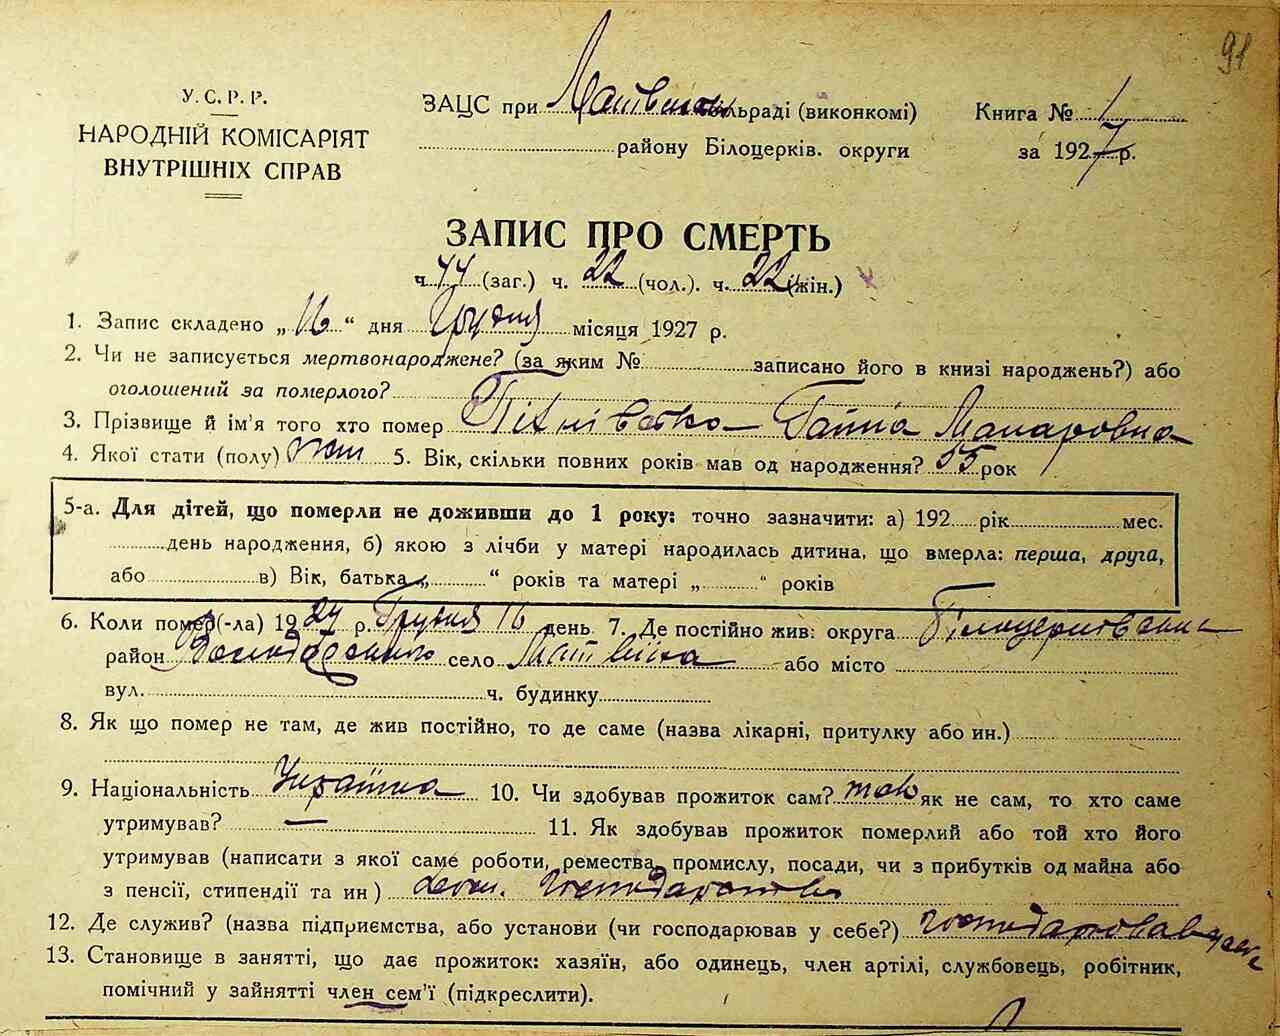 91
У.С.Р.Р.
НАРОДНІЙ КОМІСАРІЯТ
ВНУТРІШНІХ СПРАВ
ЗАЦС при сільраді (виконкомі)
району Білоцерків. округи
Книга № 1
за 1927 р.
ЗАПИС ПРО СМЕРТЬ
ч. 44 (заг.) ч. 22 (чол.). ч. 22 (жін.)
1. Запис складено „16“ дня Грудня місяця 1927 р.
2. Чи не записується мертвонароджене? (за яким № записано його в книзі народжень?) або
оголошений за померлого?
3. Прізвище й ім'я того хто помер Ганна Макаровна
4. Якої стати (полу) жін 5. Вік, скільки повних років мав од народження? 55 рок
5-а. Для дітей, що померли не доживши до 1 року: точно зазначити: а) 192 рік мес.
день народження, б) якою з лічби у матері народилась дитина, що вмерла: перша, друга,
або в) Вік, батька „ “ років та матері „ “ років
6. Коли помер(-ла) 1927 р. Грудня 16 день 7. Де постійно жив: округа Білоцерківська
район Володарського село Матвіиха або місто
вул. ч. будинку
8. Як що помер не там, де жив постійно, то де саме (назва лікарні, притулку або ин.)
9. Національність Українка 10. Чи здобував прожиток сам? так як не сам, то хто саме
утримував? —
11. Як здобував прожиток померлий або той хто його
утримував (написати з якої саме роботи, ремества, промислу, посади, чи з прибутків од майна або
з пенсії, стипендії та ин) господарство
12. Де служив? (назва підприємства, або установи (чи господарював у себе?)
13. Становище в занятті, що дає прожиток: хазяїн, або одинець, член артілі, службовець, робітник,
помічний у зайнятті член сем'ї (підкреслити).